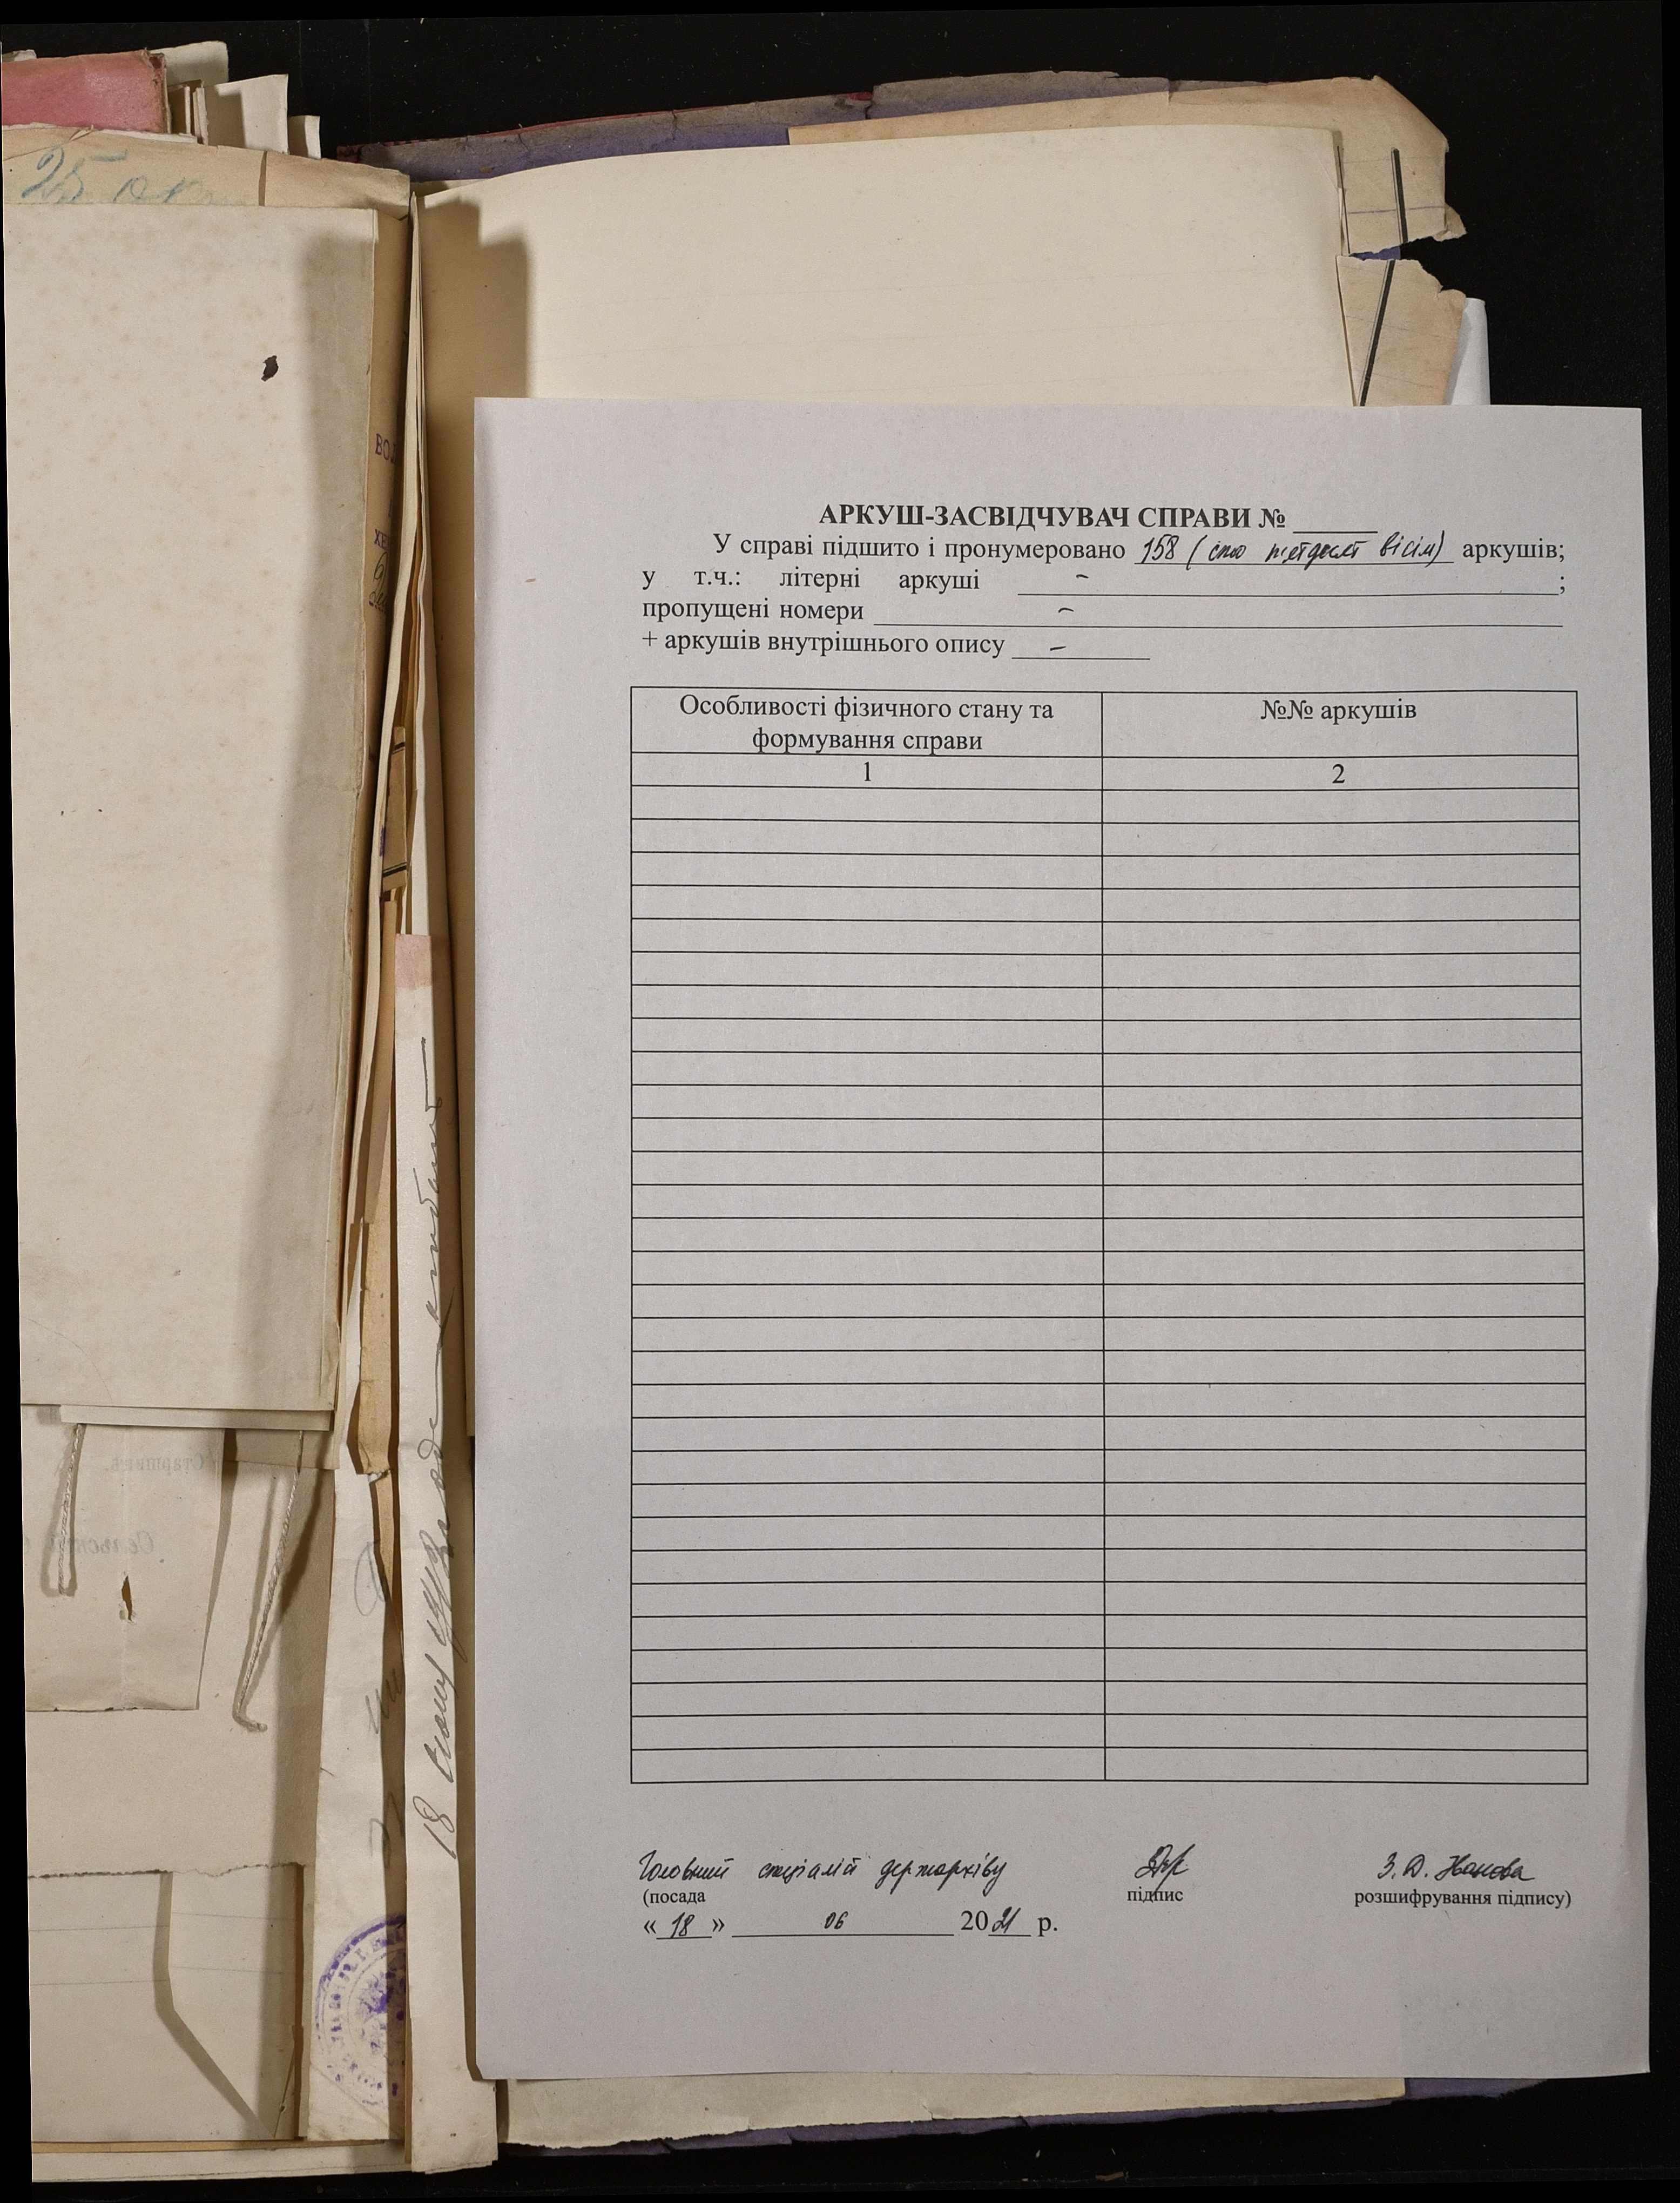 25
АРКУШ-ЗАСВІДЧУВАЧ СПРАВИ № ______
У справі підшито і пронумеровано 158 (сто пʼятдесят вісім) аркушів;
у т.ч.: літерні аркуші – ;
пропущені номери –
+ аркушів внутрішнього опису –
Особливості фізичного стану та
формування справи
№№ аркушів
1
2
Головний спеціаліст держархіву
З.Д.
(посада
підпис
розшифрування підпису)
« 18 » 06 2021 р.
Старшина.
Сельскій
18